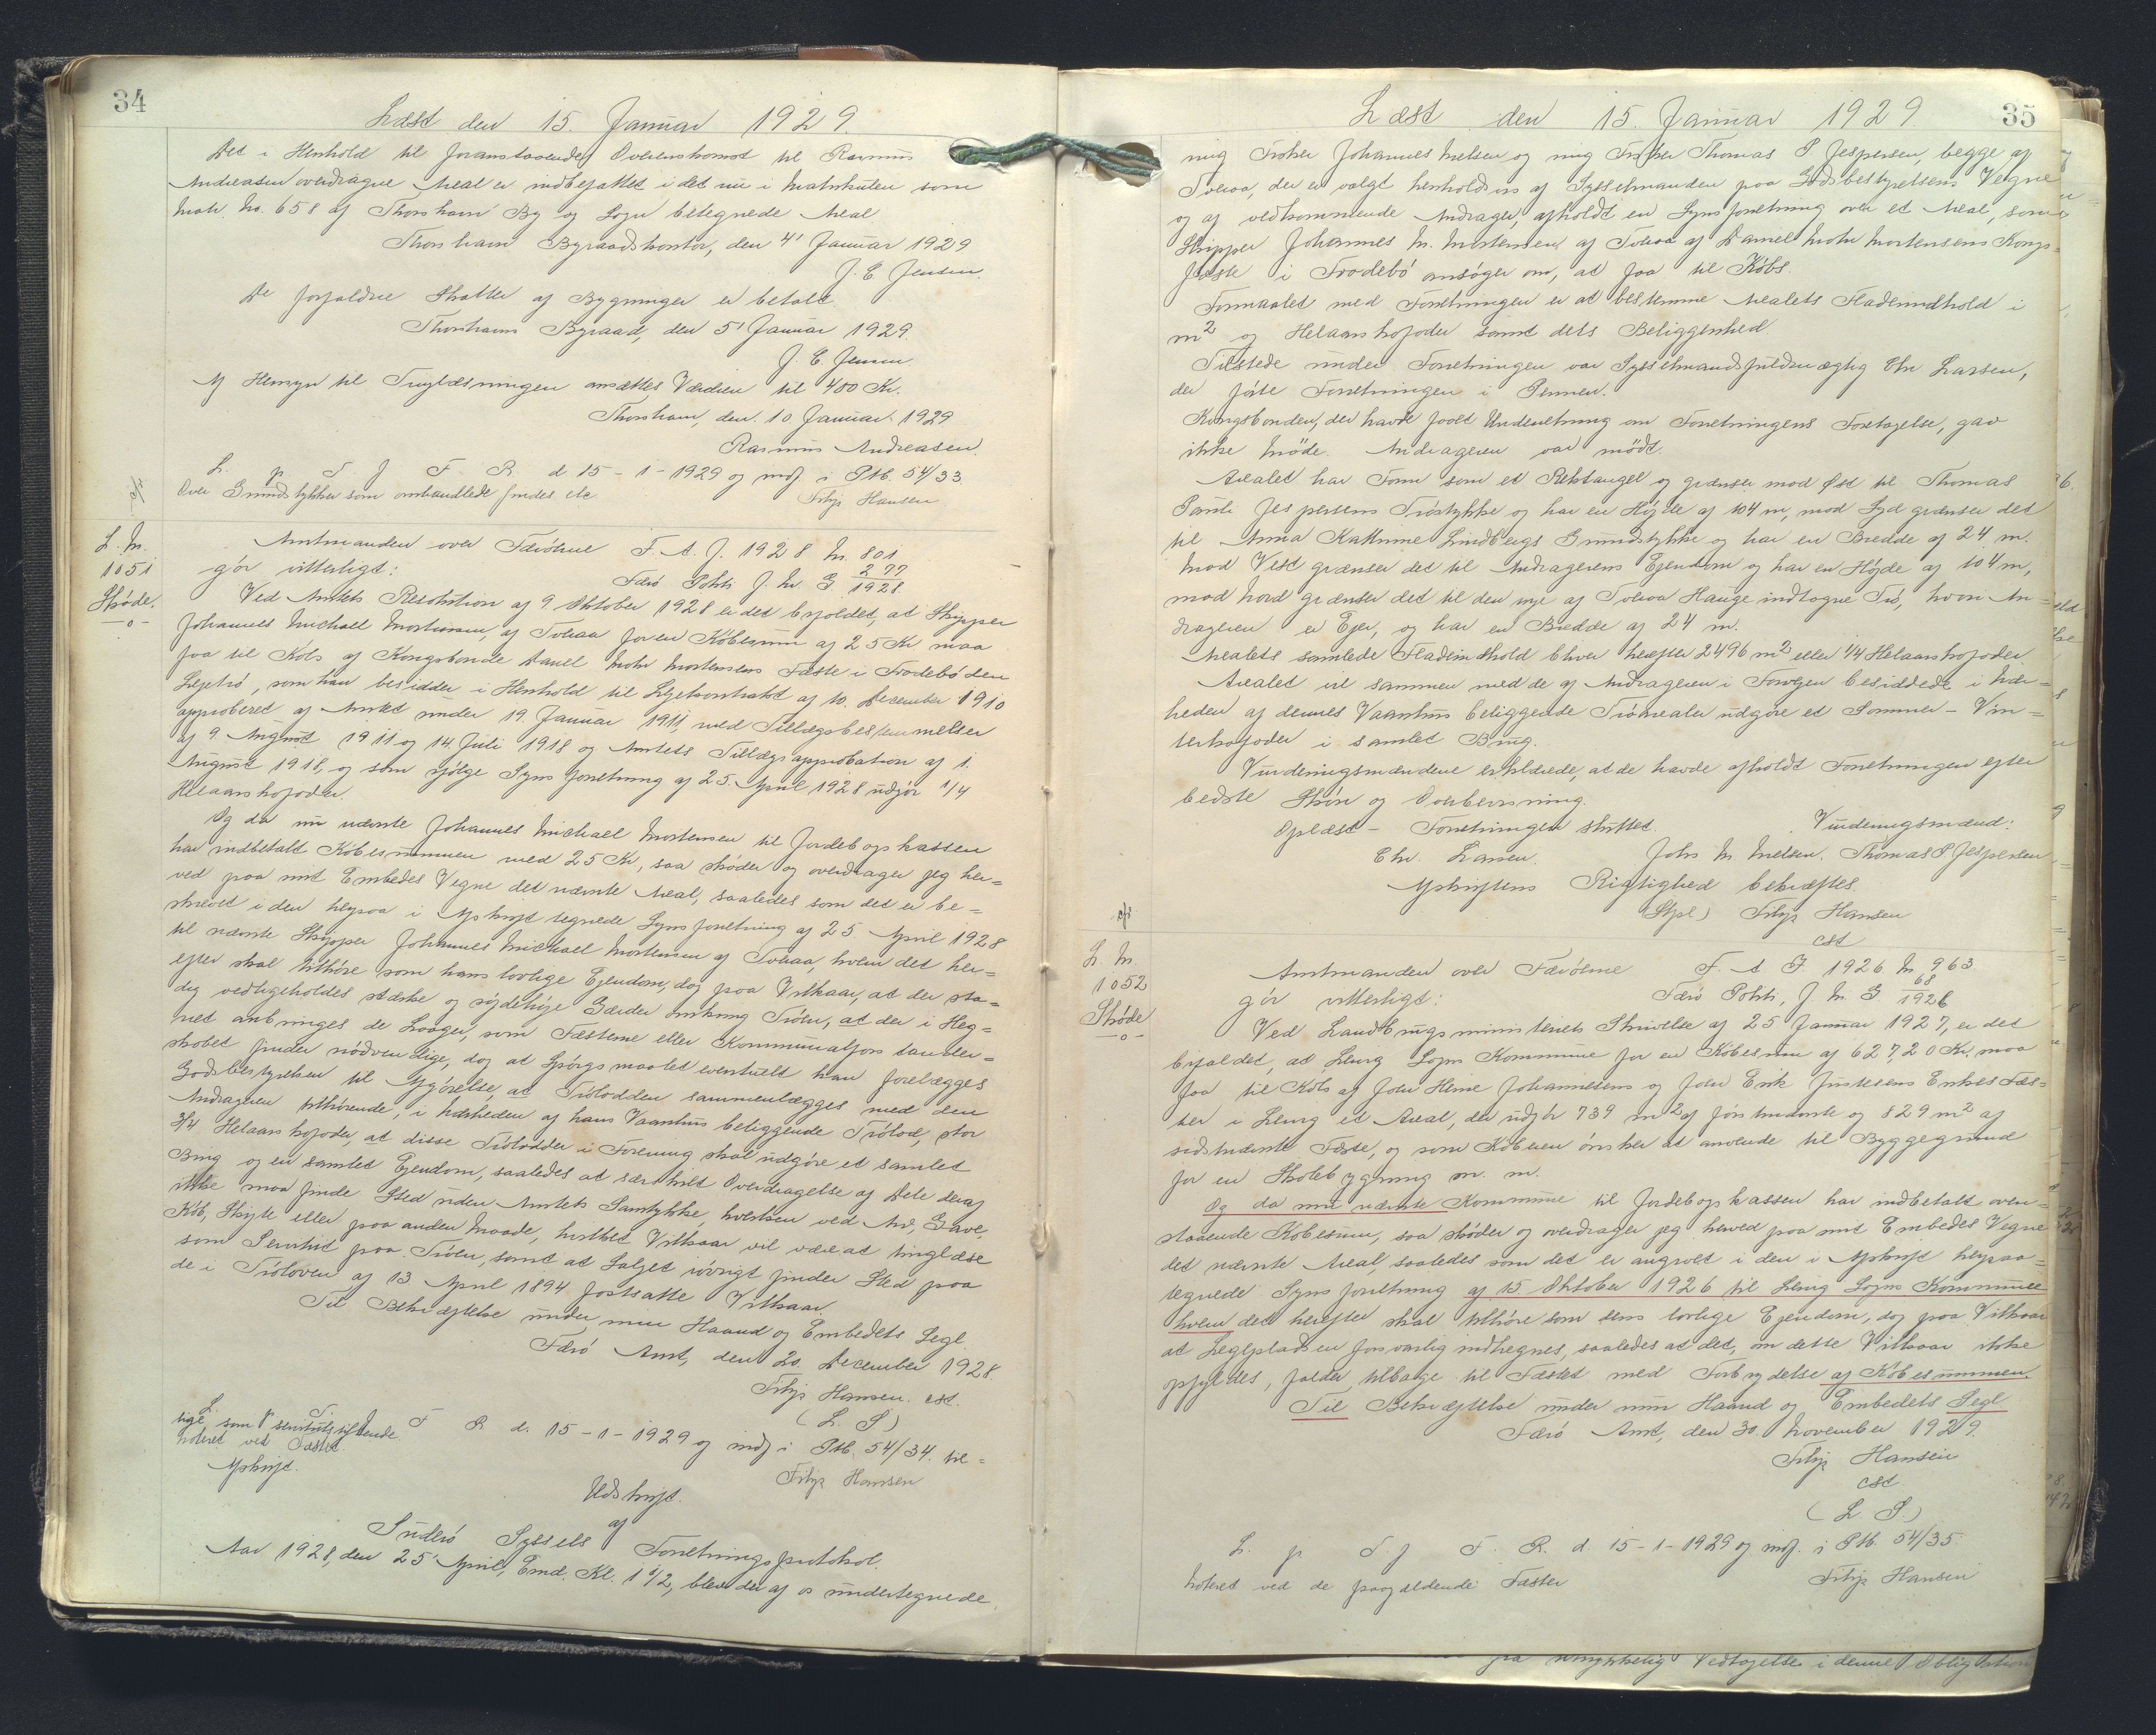 34
Læst den 15. Januar 1929.
Det i Henhold til foranstaaende Overenskomst til Rasmus
Andreasen overdragne Areal er indbefattet i det nu i Matrikulen som
Matr. No. 658 af Thorshavn By og Sogn betegnede Areal.
Thorshavn Byraadskontor, den 4' Januar 1929
J. E. Jensen.
De forfaldne Skatter af Bygningen er betalt.
Thorshavns Byraad, den 5' Januar 1929.
J. E. Jensen
Af Hensyn til Tinglæsningen ansættes Værdien til 400 Kr.
Thorshavn, den 10 Januar 1929
Rasmus Andreasen.
L. p. T. f. F. R. d. 15-1-1929 og indf. i Ptb. 54/33
Over Grundstykket som omhandlede findes etc.
Filip Hansen
L. N.
1051
Skøde.
-o-
Amtmanden over Færöerne F. A. J. 1928 N. 801
gör vitterligt: Færö Politi J. Nr. G 277/1928
Ved Amtets Resolution af 9. Oktober 1928 er det bifaldet, at Skipper
Johannes Michael Mortensen, af Tveraa for en Købesum af 25 Kr. maa
faa til Køb af Kongsbonde Daniel Mohr Mortensens Fæste i Frodebö den
Lejetrö, som han besidder i Henhold til Lejekontrakt af 10. December 1910
approberet af Amtet under 19. Januar 1911, med Tillægsbestemmelser
af 9 August 1911 og 14 Juli 1918 og Amtets Tillægsapprobation af 1.
August 1918, og som ifølge Synsforretning af 25. April 1928 udgör 1/4
Helaarskofoder.
Og da nu nævnte Johannes Michael Mortensen til Jordebogskassen
har indbetalt Købesummen med 25 Kr, saa skøder og overdrager jeg her=
ved paa mit Embedes Vegne det nævnte Areal, saaledes som det er be=
skrevet i den herpaa i Afskrift tegnede Synsforretning af 25 April 1928
til nævnte Skipper Johannes Michael Mortensen af Tveraa, hvem det her=
efter skal tilhöre som hans lovlige Ejendom, dog paa Vilkaar, at der sta=
dig vedligeholdes stærke og röjdehöje Gærder omkring Tröen, at der i Heg=
net anbringes de Laager, som Fæsterne eller Kommunalforstander=
skabet finder nödvendige, dog at Spörgsmaalet eventuelt kan forelægges
Godsbestyrelsen til Afgörelse, at Trölodden sammenlægges med den
Andrageren tilhörende, i Nærheden af hans Vaaningshus beliggende Trölod, stor
3/4 Helaarskofoder, at disse Trölodder i Forening skal udgöre et samlet
Brug og en samlet Ejendom, saaledes at særskilt Overdragelse af Dele deraf
ikke maa finde Sted uden Amtets Samtykke, hverken ved Arv, Gave,
Køb, Skifte eller paa anden Maade, hvilket Vilkaar vil være at tinglæse
som Servitut paa Tröen, samt at Salget iövrigt finder Sted paa
de i Tröloven af 13 April 1894 fastsatte Vilkaar.
Til Bekræftelse under min Haand og Embedets Segl
Færö Amt, den 20. December 1928.
Filip Hansen. cst.
(L. S)
L. T. F R. d. 15-1-1929 og indf. i Ptb. 54/34. til=
lige som servitutstiftende
noteret ved Fæstet
Filip Hansen
Afskrift.
Udskrift
af
Suderö Syssels Forretningsprotokol.
Aar 1928, den 25' April, Emd. Kl. 1 1/2, blev der af os undertegnede
35
Læst den 15. Januar 1929
mig Froker Johannes Nielsen og mig Froker Thomas P. Jespersen, begge af
Tveraa, der er valgt henholdsvis af Sysselmanden paa Godsbestyrelsens Vegne
og af vedkommende Andrager, afholdt en Synsforretning over et Areal, som
Skipper Johannes M. Mortensen af Tveraa af Daniel Mohr Mortensens Kongs=
fæste i Frodebö ansöger om, at faa til Købs.
Formaalet med Forretningen er at bestemme Arealets Fladeindhold i
m² og Helaarskofoder samt dets Beliggenhed
Tilstede under Forretningen var Sysselmandsfuldmægtig Chr. Larsen,
der förte Forretningen i Pennen.
Kongsbonden, der havde faaet Underretning om Forretningens Foretagelse, gav
ikke Möde. Andrageren var mödt.
Arealet har Form som et Rektangel og grænser mod Øst til Thomas
Pauli Jespersens Tröstykke og har en Höjde af 104 m, mod Syd grænser det
til Anna Kathrine Lindbergs Grundstykke og har en Bredde af 24 m.
Mod Vest grænser det til Andragerens Ejendom og har en Höjde af 104 m,
mod Nord grænser det til den nye af Tveraa Hauge indtagne Trö, hvori An=
drageren er Ejer, og har en Bredde af 24 m.
Arealets samlede Fladeindhold bliver herefter 2496 m² eller 1/4 Helaarskofoder.
Arealet vil sammen med de af Andrageren i Forvejen besiddede i Nær=
heden af dennes Vaaningshus beliggende Tröarealer udgöre et Sommer- Vin=
terkofoder i samlet Brug.
Vurderingsmændene erklærede, at de havde afholdt Forretningen efter
bedste Skön og Overbevisning.
Oplæst - Forretningen sluttet. Vurderingsmænd:
Chr. Larsen. Johs M. Nielsen. Thomas P Jespersen
Afskriftens Rigtighed bekræftes.
(Stpl) Filip Hansen
cst
L. N.
1052
Skøde
-o-
Amtmanden over Færöerne F. A J. 1926 N. 963
gör vitterligt: Færö Politi, J. Nr. G 68/1926
Ved Landbrugsministeriets Skrivelse af 25 Januar 1927, er det
bifaldet, at Lervig Sogns Kommune for en Købesum af 627,20 Kr. maa
faa til Køb af Joen Heine Johannesens og Joen Erik Justesens Enkes Fæs=
ter i Lervig et Areal, der udgör 739 m² af förstnævnte og 829 m² af
sidstnævnte Fæste, og som Køberen önsker at anvende til Byggegrund
for en Skolebygning m. m.
Og da nu nævnte Kommune til Jordebogskassen har indbetalt oven=
staaende Købesum, saa skøder og overdrager jeg herved paa mit Embedes Vegne
det nævnte Areal, saaledes som det er angivet i den i Afskrift herpaa=
tegnede Synsforretning af 15 Oktober 1926 til Lervig Sogns Kommune
hvem det herefter skal tilhöre som dens lovlige Ejendom, dog paa Vilkaar
at Legepladsen forsvarlig indhegnes, saaledes at det, om dette Vilkaar ikke
opfyldes, falder tilbage til Fæstet med Fortrydelse af Købesummen.
Til Bekræftelse under min Haand og Embedets Segl
Færö Amt, den 30. November 1929.
Filip Hansen
cst
(L S.)
L. p. T. f. F. R. d. 15-1-1929 og indf. i Ptb. 54/35
Noteret ved de paagældende Fæster Filip Hansen
Vedtagelse i denne Obligation